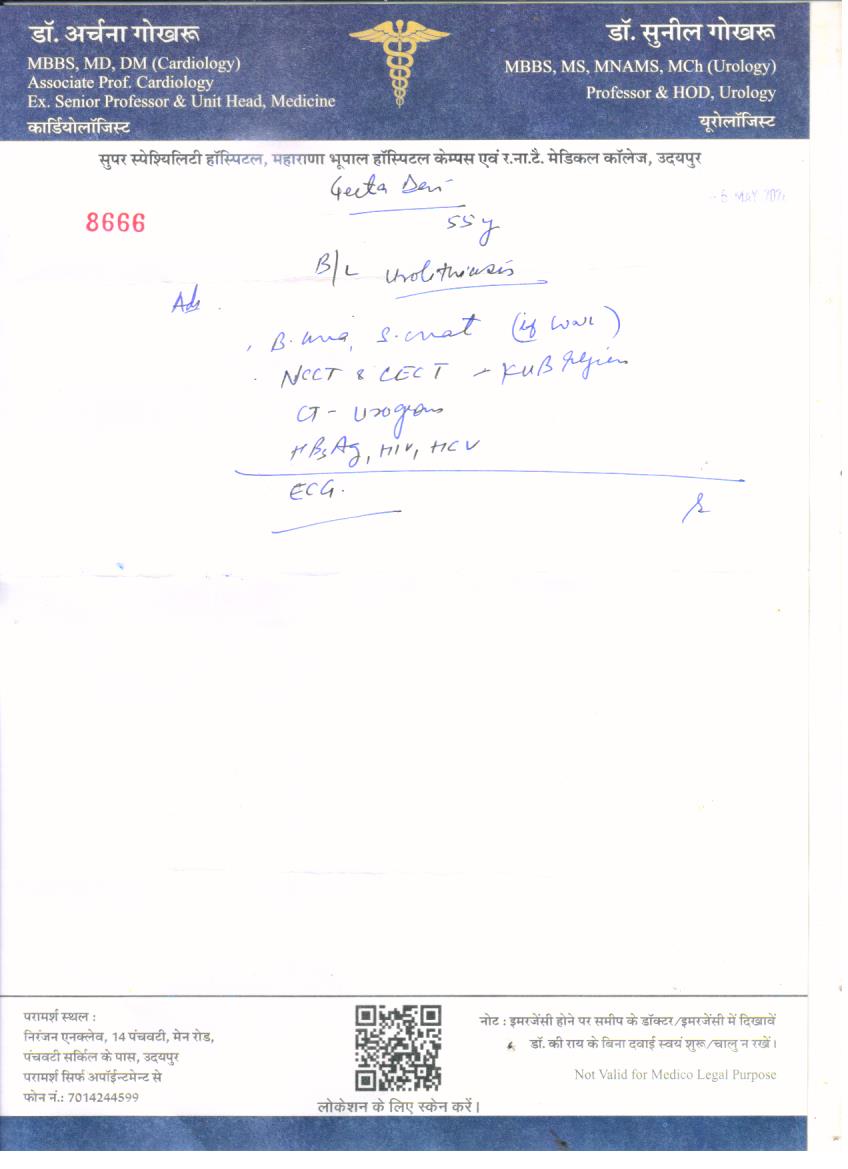 डॉ. अर्चना गोखरू
MBBS, MD, DM (Cardiology)
Associate Prof. Cardiology
Ex. Senior Professor & Unit Head, Medicine
कार्डियोलॉजिस्ट
डॉ. सुनील गोखरू
MBBS, MS, MNAMS, MCh (Urology)
Professor & HOD, Urology
यूरोलॉजिस्ट
सुपर स्पेश्यिलिटी हॉस्पिटल, महाराणा भूपाल हॉस्पिटल केम्पस एवं र.ना.टै. मेडिकल कॉलेज, उदयपुर
Geeta Devi
8666
55y
B/L Urolithiasis
Adv
B. urea, S. creat
NCCT & CECT - KUB Region
CT - Urogram
HBsAg, HIV, HCV
ECG.
परामर्श स्थल :
निरंजन एनक्लेव, 14 पंचवटी, मेन रोड,
पंचवटी सर्किल के पास, उदयपुर
परामर्श सिर्फ अपॉईन्टमेन्ट से
फोन नं.: 7014244599
लोकेशन के लिए स्केन करें।
नोट : इमरजेंसी होने पर समीप के डॉक्टर/इमरजेंसी में दिखावें
डॉ. की राय के बिना दवाई स्वयं शुरू/चालु न रखें।
Not Valid for Medico Legal Purpose